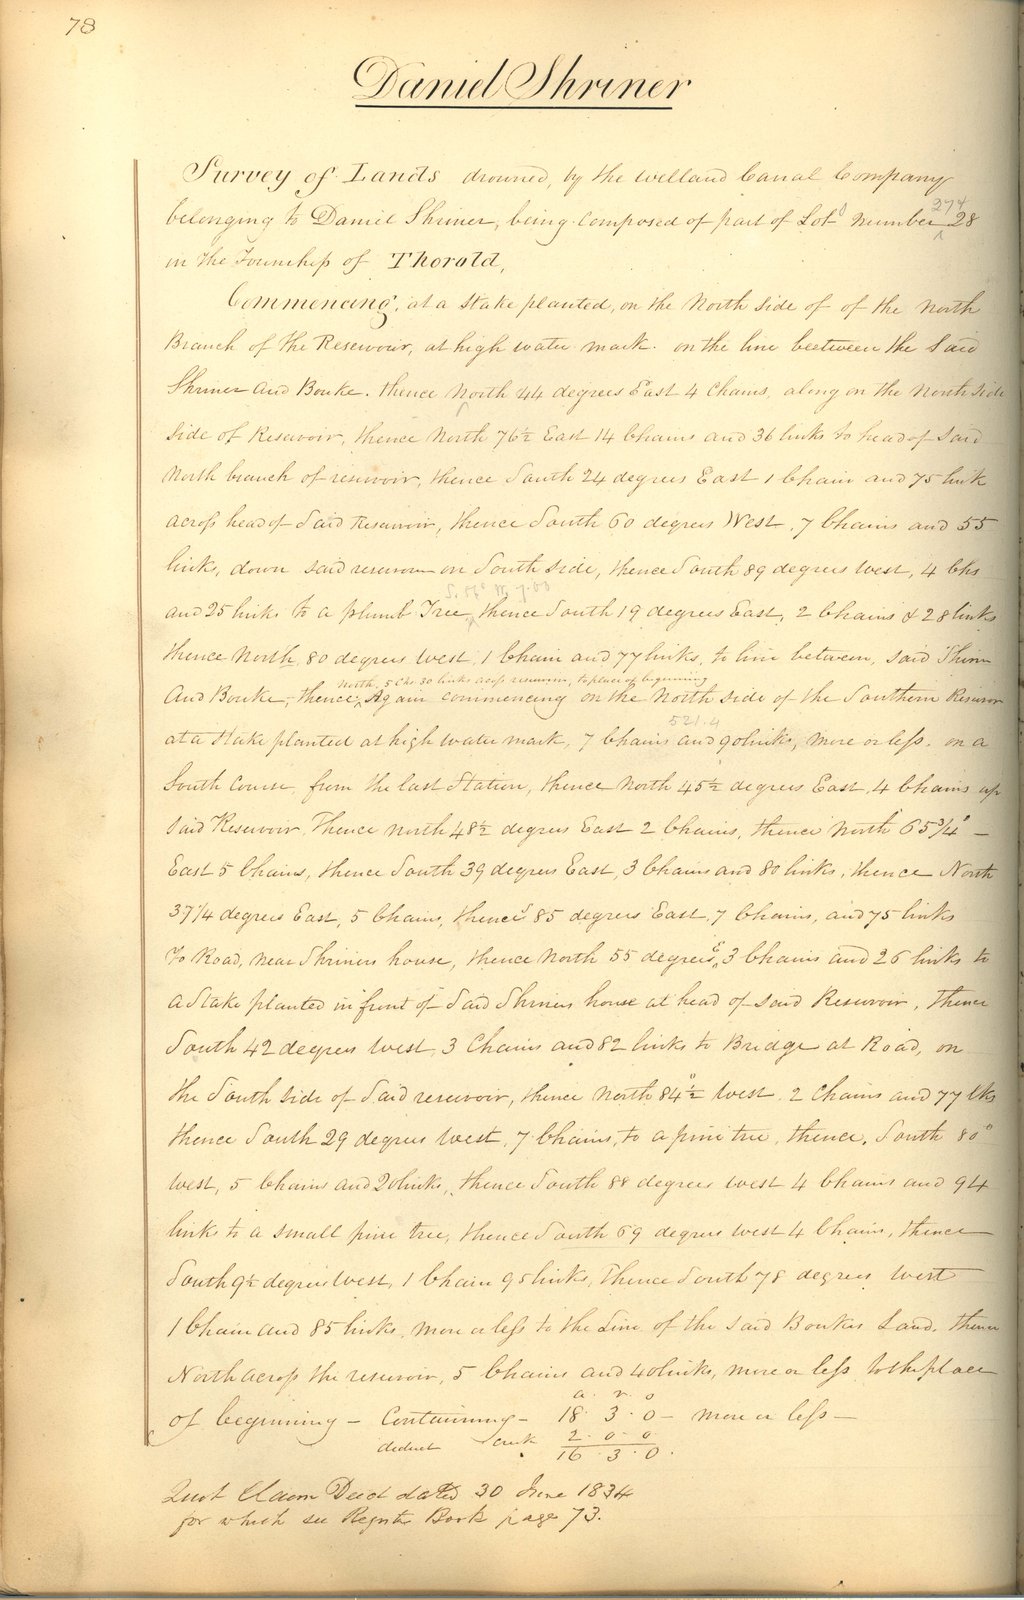 78
Daniel Shriner
Survey of Lands drowned, by the Welland Canal Company
274
belonging to Daniel Shriner, being composed of part of Lot number 28
in the Township of Thorold,
Commencing, at a stake planted, on the North side of of the North
Branch of the Reservoir, at high water mark. on the line beetween the Said
Shriner And Bouke. thence North 44 degrees East 4 Chains, along on the North side
side of Reservoir, thence North 76½ East 14 Chains and 36 links to head of said
North branch of reservoir, thence South 24 degrees East 1 Chain and 75 link
across head of Said Reservoir, thence South 60 degrees West, 7 Chains and 55
links, down said reservoir on South side, thence South 89 degrees west, 4 Chs
and 25 links to a plumb Tree, thence South 19 degrees East, 2 Chains & 28 links
thence North, 80 degrees west, 1 Chain and 77 links, to line between, said Shrinr
North, 5 Chs 30 links across reservoir, to place of beginning
And Bouke, thence, Again commencing on the North side of the Southern Reservor
521.4
at a stake planted at high water mark, 7 Chains and 90 links, more or less. on a
South Course, from the last Station, thence North 45½ degrees East, 4 Chains up
said Reservoir, Thence North 48½ degrees East 2 Chains, thence North 65¾°
East 5 Chains, thence South 39 degrees East, 3 Chains and 80 links, thence North
37¼ degrees East, 5 Chains, thence S 85 degrees East, 7 Chains, and 75 links
To Road, near Shriners house, thence North 55 degrees E, 3 Chains and 26 links to
a Stake planted in front of Said Shriners house at head of said Reservoir, thence
South 42 degrees west, 3 Chains and 82 links to Bridge at Road, on
the South side of Said reservoir, thence North 84½° west. 2 Chains and 77 lks
thence South 29 degrees west, 7 Chains, to a pine tree, thence, South 80°
west, 5 Chains and 20 links, thence South 88 degrees west 4 Chains and 94
links to a small pine tree, thence South 69 degrees west 4 Chains, thence
South 9½ degrees west, 1 Chain 95 links, thence South 78 degrees west
1 Chain and 85 links, more or less to the Line of the said Boukes Land, thence
North across the reservoir, 5 Chains and 40 links, more or less to the place
a. r. o
of beginning — Containing — 18. 3. 0 — more or less —
deduct creek 2. 0. 0
16. 3. 0.
Quit Claim Deed dated 30 June 1834
for which see Register Book page 73.